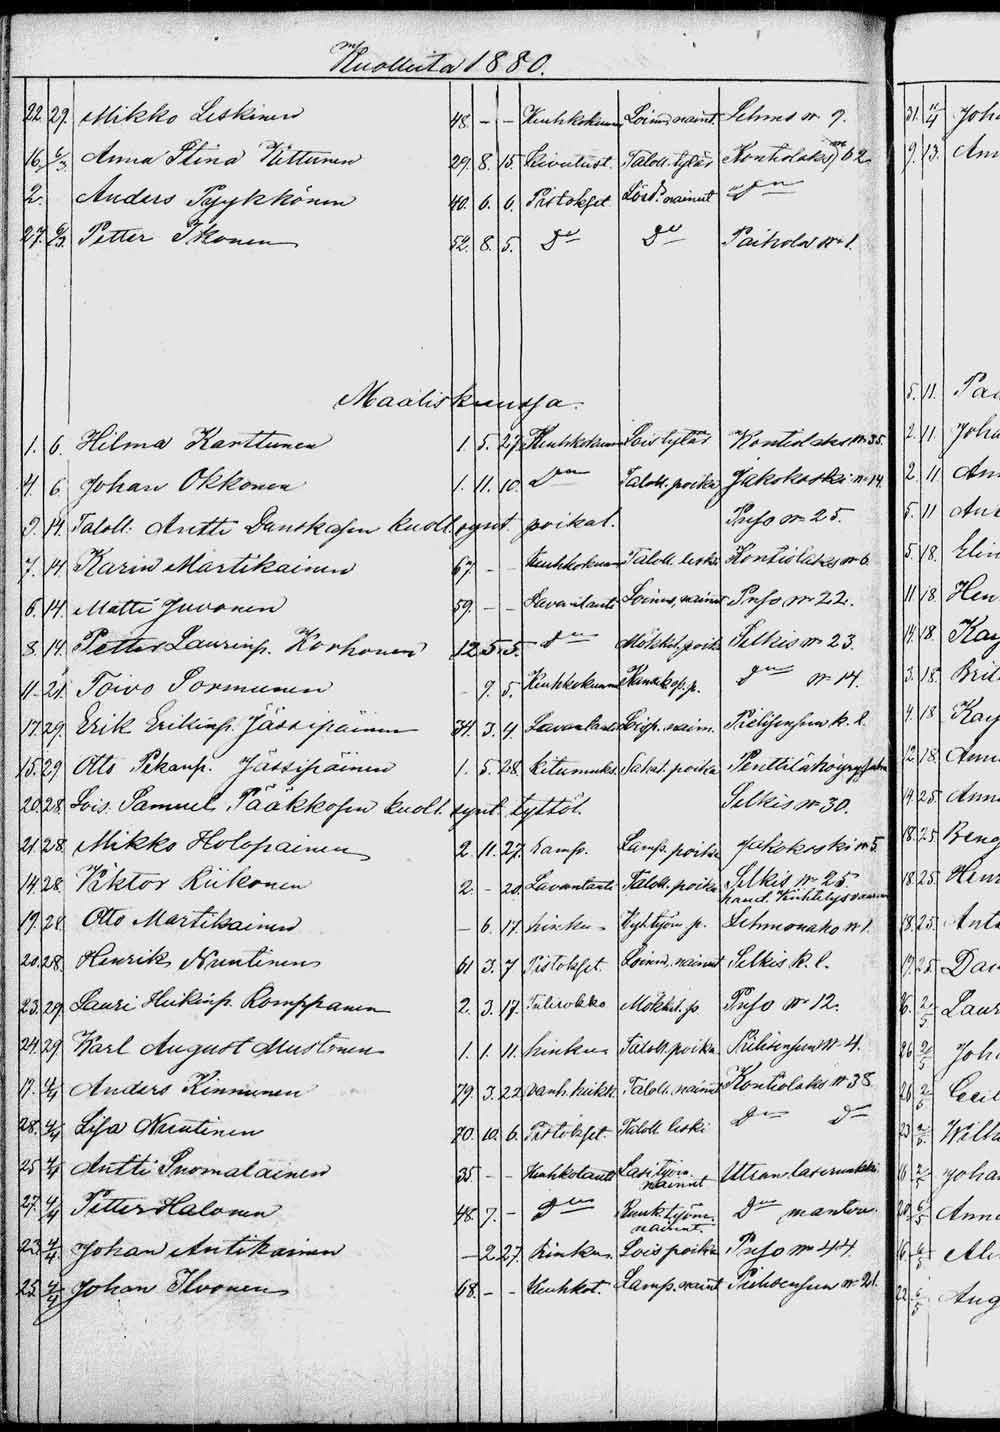 Kuolleita 1880.
22. 29. Mikko Leskinen 48. - - Keuhkokuum Loinen, nainut. Lehmo № 9.
16. 6/3. Anna Stina Kettunen 29. 8. 15. Taloll. tytär Kontiolaks № 62
2. Anders Pyykkönen 40. 6. 6. Pistokset Lois. nainut D:o
27. 6/3. Petter Ikonen 52. 8. 5. D:o D:o Paihola № 1.
Maaliskuussa.
1. 6. Hilma Karttunen 1. 5. 27. Keuhkokuum Lois tytär Kontiolaks № 35.
4. 6. Johan Okkonen 1. 11. 10. D:o Taloll. poika Jakokoski № 14.
9. 14. Taloll. Antti Danskasen kuoll. synt. poikal. Puso № 25.
7. 14. Karin Martikainen 67 - - Keuhkokuum Taloll. leski Kontiolaks № 6.
6. 14. Matti Juvonen 59. - - Lavantauti Loinen, nainut Puso № 22.
8. 14. Petter Laurinp. Korhonen 12 5. 5. D:o Mökkil. poika Selkis № 23.
11. 21. Toivo Sormunen - 9. 5. Keuhkokuum D:o № 14.
17. 29. Erik Erikinp. Jässipäinen 34. 3. 4. Lavantauti Loisp. nainu. Pielisensuu k. l.
15. 29. Otto Pekanp. Jässipäinen 1. 5. 28. kitumus. poika
20. 28. Lois. Samuel Pääkkösen kuoll. synt. tyttöl. Selkis № 30.
21. 28. Mikko Holopainen 2. 11. 27. Lamp. poika Jakokoski № 5.
14. 28. Viktor Riikonen 2. - 20. Lavantauti Taloll. poika Selkis № 25.
17. 28. Otto Martikainen - 6. 17. hinku p. Lehmonaho № 1.
20. 28. Henrik Nuutinen 61 3. 7 Pistokset. Loinen, nainut Selkis k. l.
23. 29. Lauri Heikinp. Romppanen 2. 3. 17. Tulirokko Mökkil. p. Puso № 12.
24. 29. Karl August Mustonen 1. 1. 11. hinku Taloll. poika Pielisensuu № 4.
17. 4/4 Anders Kinnunen 79. 3. 22 vanh. heikk. Taloll. nainut Kontiolaks № 38
28. 4/4 Lisa Nuutinen 70. 10. 6. Pistokset. Taloll. leski D:o D:o
25 4/4 Antti Suomalainen 35. - - Keuhkotauti Lasi työm. nainut Utran lasiruukki
27. 4/4 Petter Halonen 48. 7. - D:o Ruuk. työm. nainut. D:o
23. 4/4. Johan Antikainen - 2 27. hinku. Lois poika Puso № 44.
25. 4/4 Johan Ilvonen 68. - - Keuhkot. Lamp. nainut Pielisensuu № 21.
31. 11/4 Joh
9. 13. Ann
5. 11.
2. 11. Joha
2. 11. Ann
5. 11
5. 18. Elin
11. 18. Hen
14. 18. Kay
3. 18. Brit
4. 18 Kay
12. 18. Anna
14. 25. Anna
18. 25 Beng
18. 25. Henr
18. 25. Anti
17. 25. Dav
26. 2/5 Laur
26. 2/5 Joh
26. 2/5 Cecil
23 2/5 Wilh
16 2/5 Joha
20. 6/5 Anna
16. 6/5
22. 6/5 Aug